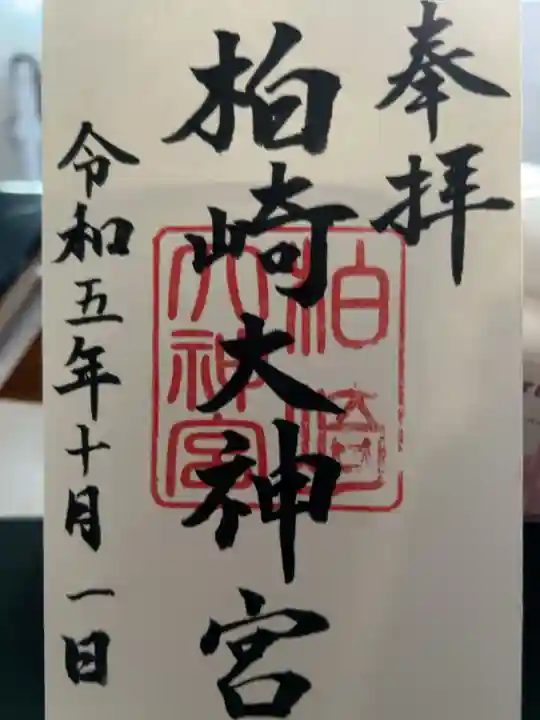 奉拝
柏崎大神宮
柏崎
大神宮
令和五年十月一日